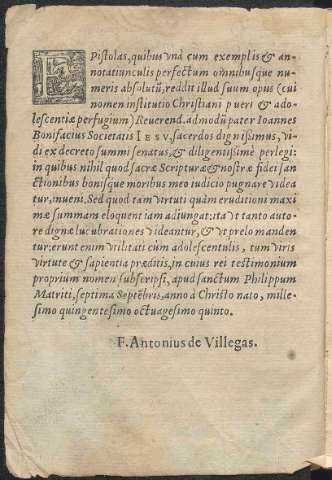 EPistolas, quibus vnà cum exemplis & an-
notatiunculis perfectum omnibusque nu-
meris absolutū, reddit illud suum opus (cui
nomen institutio Christiani pueri & ado-
lescentiæ perfugium) Reuerend. admodū pater Ioannes
Bonifacius Societatis IESV, sacerdos dignissimus, vi-
di ex decreto summi senatus, & diligentissimè perlegi:
in quibus nihil quod sacræ Scripturæ & nostræ fidei san
ctionibus bonisque moribus meo iudicio pugnare videa
tur, inueni. Sed quod tam virtuti quàm eruditioni maxi
mæ summam eloquentiam adiungat: ita vt tanto auto-
re dignæ lucubrationes videantur, & vt prelo manden
tur: erunt enim vtilitati cùm adolescentulis, tum viris
virtute & sapientia præditis, in cuius rei testimonium
proprium nomen subscripsi, apud sanctum Philippum
Matriti, septima Septēbris, anno à Christo nato, mille-
simo quingentesimo octuagesimo quinto.
F. Antonius de Villegas.